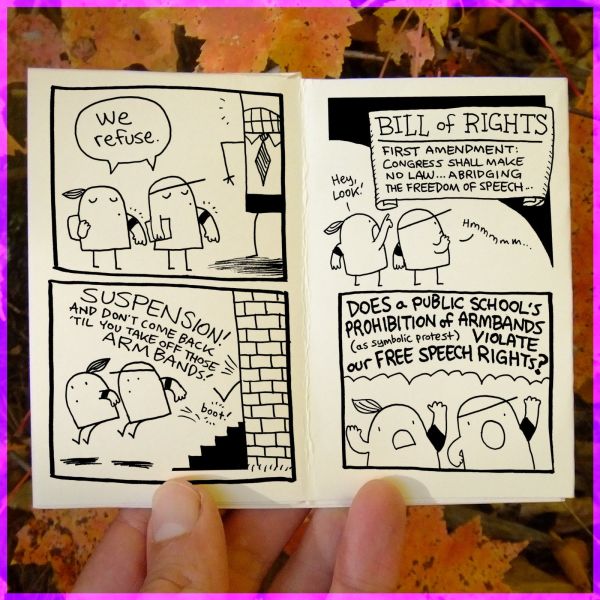 We
refuse.
SUSPENSION!
AND DON'T COME BACK
'TIL YOU TAKE OFF THOSE
ARMBANDS!
boot!
BILL of RIGHTS
FIRST AMENDMENT:
CONGRESS SHALL MAKE
NO LAW... ABRIDGING
THE FREEDOM OF SPEECH...
Hey,
LOOK!
Hmmmmm...
DOES a PUBLIC SCHOOL'S
PROHIBITION of ARMBANDS
(as symbolic protest) VIOLATE
our FREE SPEECH RIGHTS?